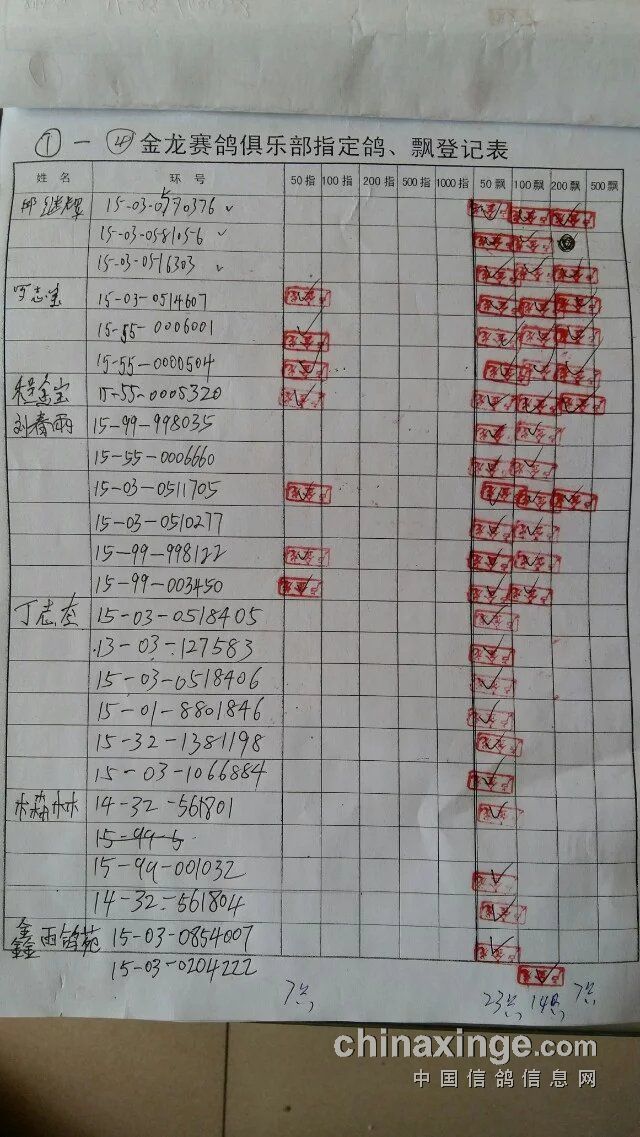 ① 一 ④ 金龙赛鸽俱乐部指定鸽、飘登记表
姓 名 环 号 50 指 100 指 200 指 500 指 1000 指 50 飘 100 飘 200 飘 500 飘
15-03-0570376
15-03-0581056
15-03-0516303
15-03-0514607
15-55-0006001
15-55-0000504
15-55-0005320
刘春雨 15-99-998035
15-55-0006660
15-03-0511705
15-03-0510277
15-99-998122
15-99-003450
丁志杰 15-03-0518405
13-03-127583
15-03-0518406
15-01-8801846
15-32-1381198
15-03-1066884
14-32-561801
15-99-
15-99-001032
14-32-561804
鑫雨鸽苑 15-03-0854007
15-03-0204222
7只 23只 14只 7只
chinaxinge.com
中国信鸽信息网